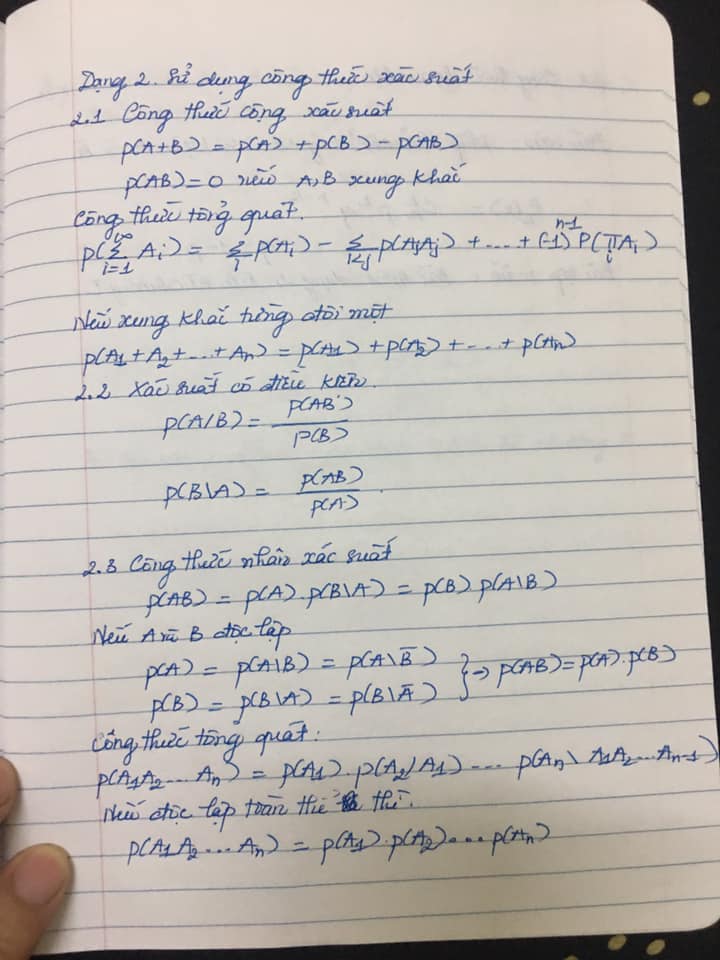 Dạng 2. Sử dụng công thức xác suất
2.1 Công thức cộng xác suất
P(A+B) = P(A) + P(B) - P(AB)
P(AB) = 0 nếu A,B xung khắc
Công thức tổng quát.
P(∑_{i=1}^{∞} A_i) = ∑_i P(A_i) - ∑_{i<j} P(A_iA_j) + ... + (-1)^{n-1} P(∏_i A_i)
Nếu xung khắc từng đôi một
P(A₁ + A₂ + ... + Aₙ) = P(A₁) + P(A₂) + ... + P(Aₙ)
2.2 Xác suất có điều kiện.
P(A/B) = P(AB) / P(B)
P(B\A) = P(AB) / P(A)
2.3 Công thức nhân xác suất
P(AB) = P(A).P(B\A) = P(B) P(A\B)
Nếu A và B độc lập
P(A) = P(A\B) = P(A\B̅)
P(B) = P(B\A) = P(B\A̅) } → P(AB) = P(A).P(B)
Công thức tổng quát:
P(A₁A₂...Aₙ) = P(A₁).P(A₂/A₁)...P(Aₙ\A₁A₂...Aₙ₋₁)
Nếu độc lập toàn thể thì.
P(A₁A₂...Aₙ) = P(A₁).P(A₂)...P(Aₙ)